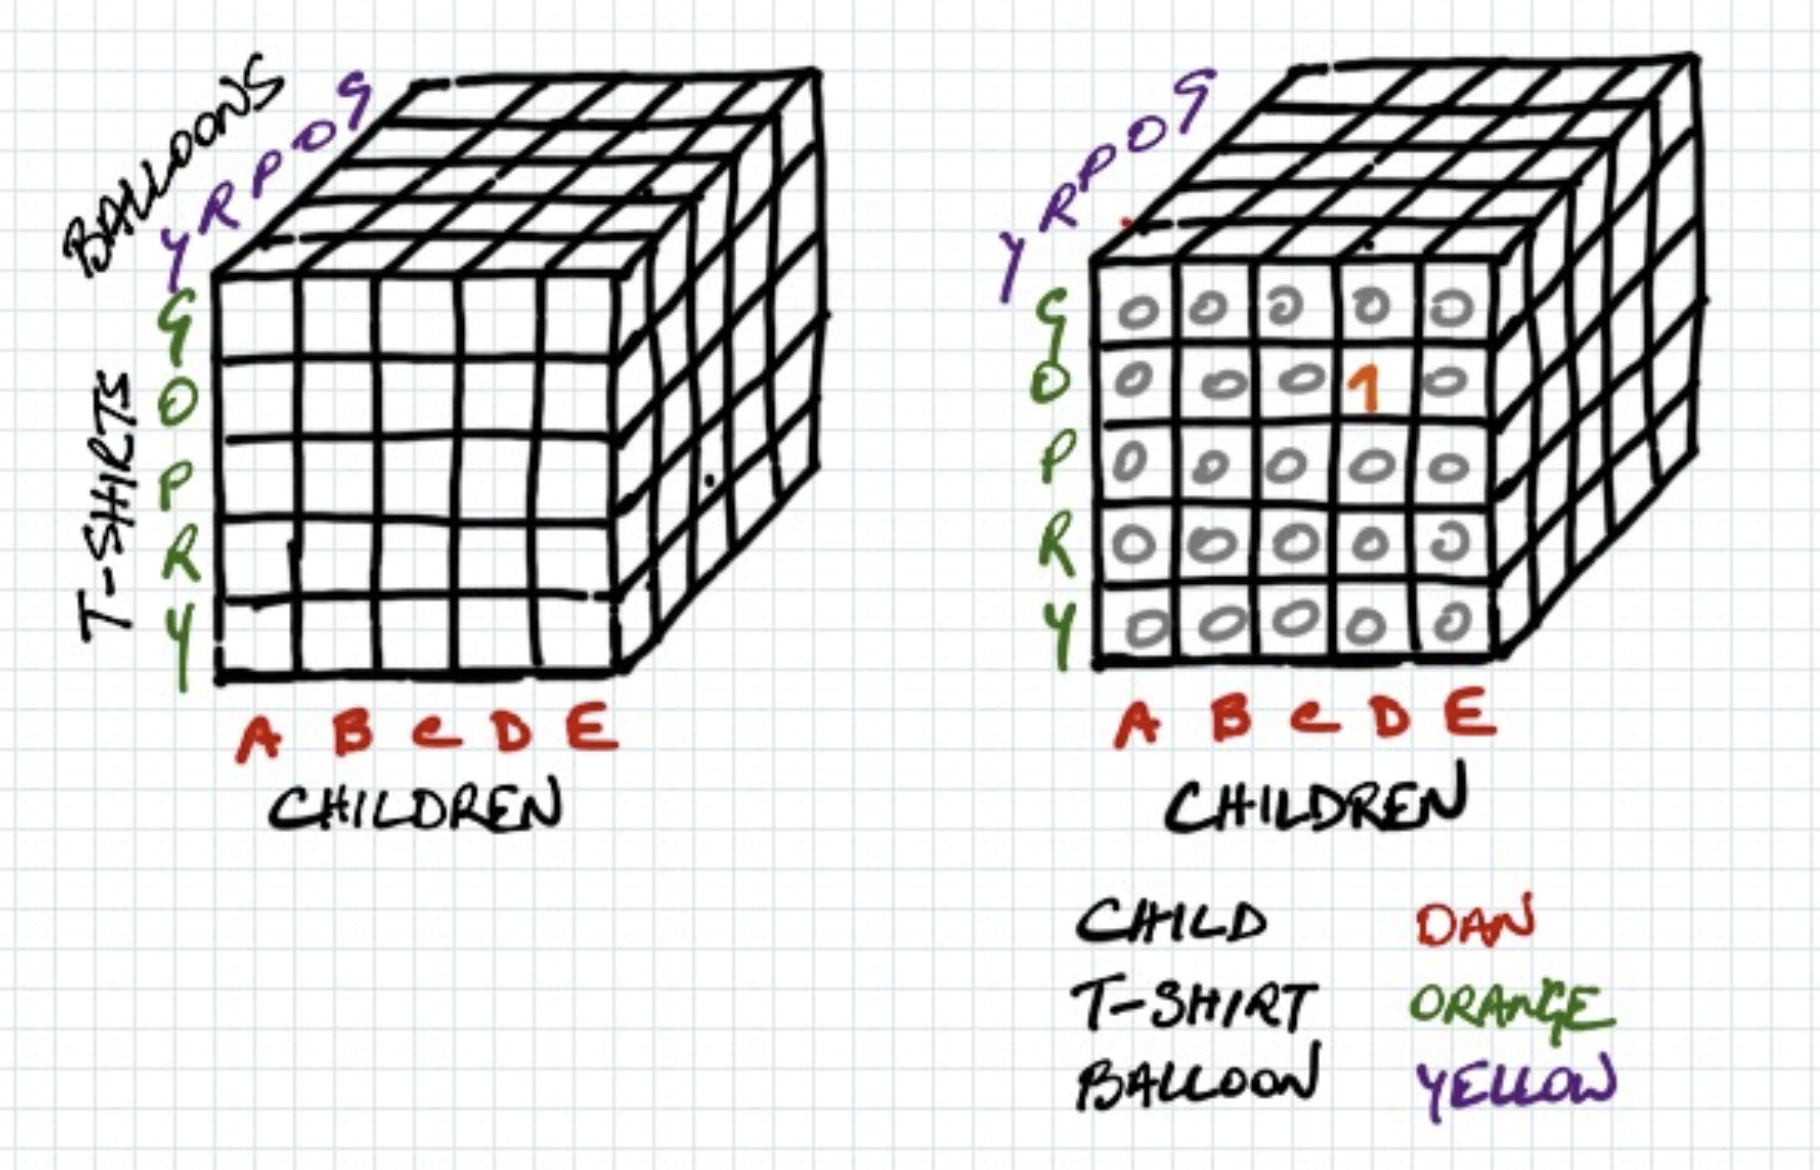 BALLOONS
Y R P O G
T-SHIRTS
G
O
P
R
Y
A B C D E
CHILDREN
Y R P O G
G 0 0 0 0 0
O 0 0 0 1 0
P 0 0 0 0 0
R 0 0 0 0 0
Y 0 0 0 0 0
A B C D E
CHILDREN
CHILD DAN
T-SHIRT ORANGE
BALLOON YELLOW